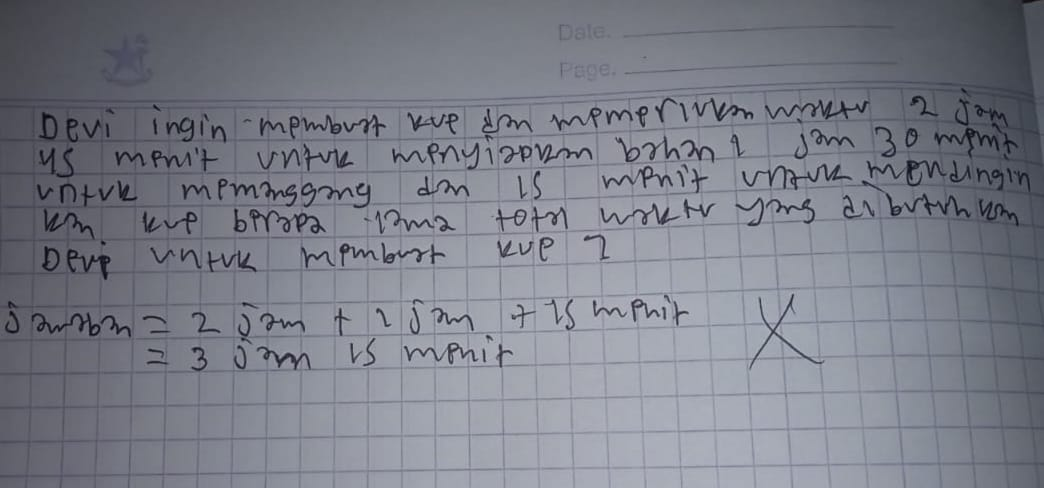 Date.
Page.
Devi ingin membuat kue dan memerlukan waktu 2 jam
45 menit untuk menyiapkan bahan 1 jam 30 menit
untuk memanggang dan 15 menit untuk mendingin
kan kue berapa lama total waktu yang dibutuhkan
Devi untuk membuat kue ?
Jawaban = 2 jam + 1 jam + 15 menit
= 3 jam 15 menit